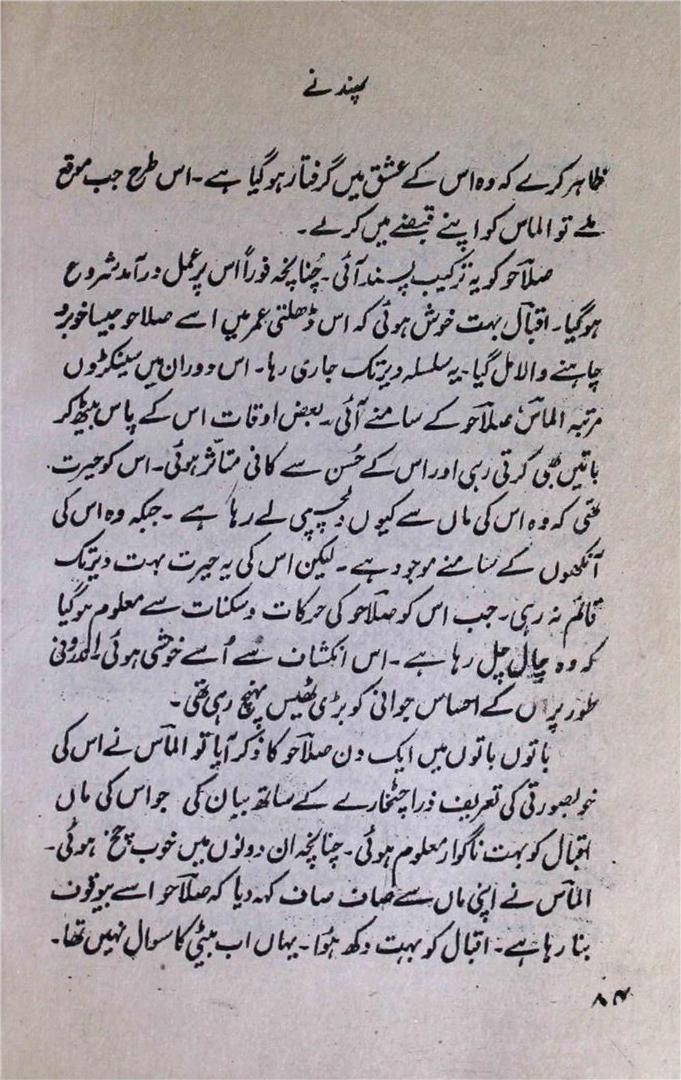 پھندنے
ظاہر کرے کہ وہ اس کے عشق میں گرفتار ہو گیا ہے۔ اس طرح جب موقع
ملے تو الماس کو اپنے قبضے میں کرلے۔
صلاحو کو یہ ترکیب پسند آئی۔ چنانچہ فوراً اس پر عمل درآمد شروع
ہوگیا۔ اقبال بہت خوش ہوئی کہ اس ڈھلتی عمر میں اسے صلاحو جیسا خوبرو
چاہنے والا مل گیا۔ یہ سلسلہ دیر تک جاری رہا۔ اس دوران میں سینکڑوں
مرتبہ الماس صلاحو کے سامنے آئی۔ بعض اوقات اس کے پاس بیٹھ کر
باتیں بھی کرتی رہی اور اس کے حُسن سے کافی متاثر ہوئی۔ اس کو حیرت
تھی کہ وہ اس کی ماں سے کیوں دلچسپی لے رہا ہے۔ جبکہ وہ اس کی
آنکھوں کے سامنے موجود ہے۔ لیکن اس کی یہ حیرت بہت دیر تک
قائم نہ رہی۔ جب اس کو صلاحو کی حرکات و سکنات سے معلوم ہوگیا
کہ وہ چال چل رہا ہے۔ اس انکشاف سے اُسے خوشی ہوئی۔ اندرونی
طور پر اس کے احساس جوانی کو بڑی ٹھیس پہنچ رہی تھی۔
باتوں باتوں میں ایک دن صلاحو کا ذکر آیا تو الماس نے اس کی
خوبصورتی کی تعریف ذرا چٹخارے کے ساتھ بیان کی جو اس کی ماں
اقبال کو بہت ناگوار معلوم ہوئی۔ چنانچہ ان دونوں میں خوب چخ ہوئی۔
الماس نے اپنی ماں سے صاف صاف کہہ دیا کہ صلاحو اسے بیوقوف
بنا رہا ہے۔ اقبال کو بہت دکھ ہُوا۔ یہاں اب بیٹی کا سوال نہیں تھا۔
۸۴